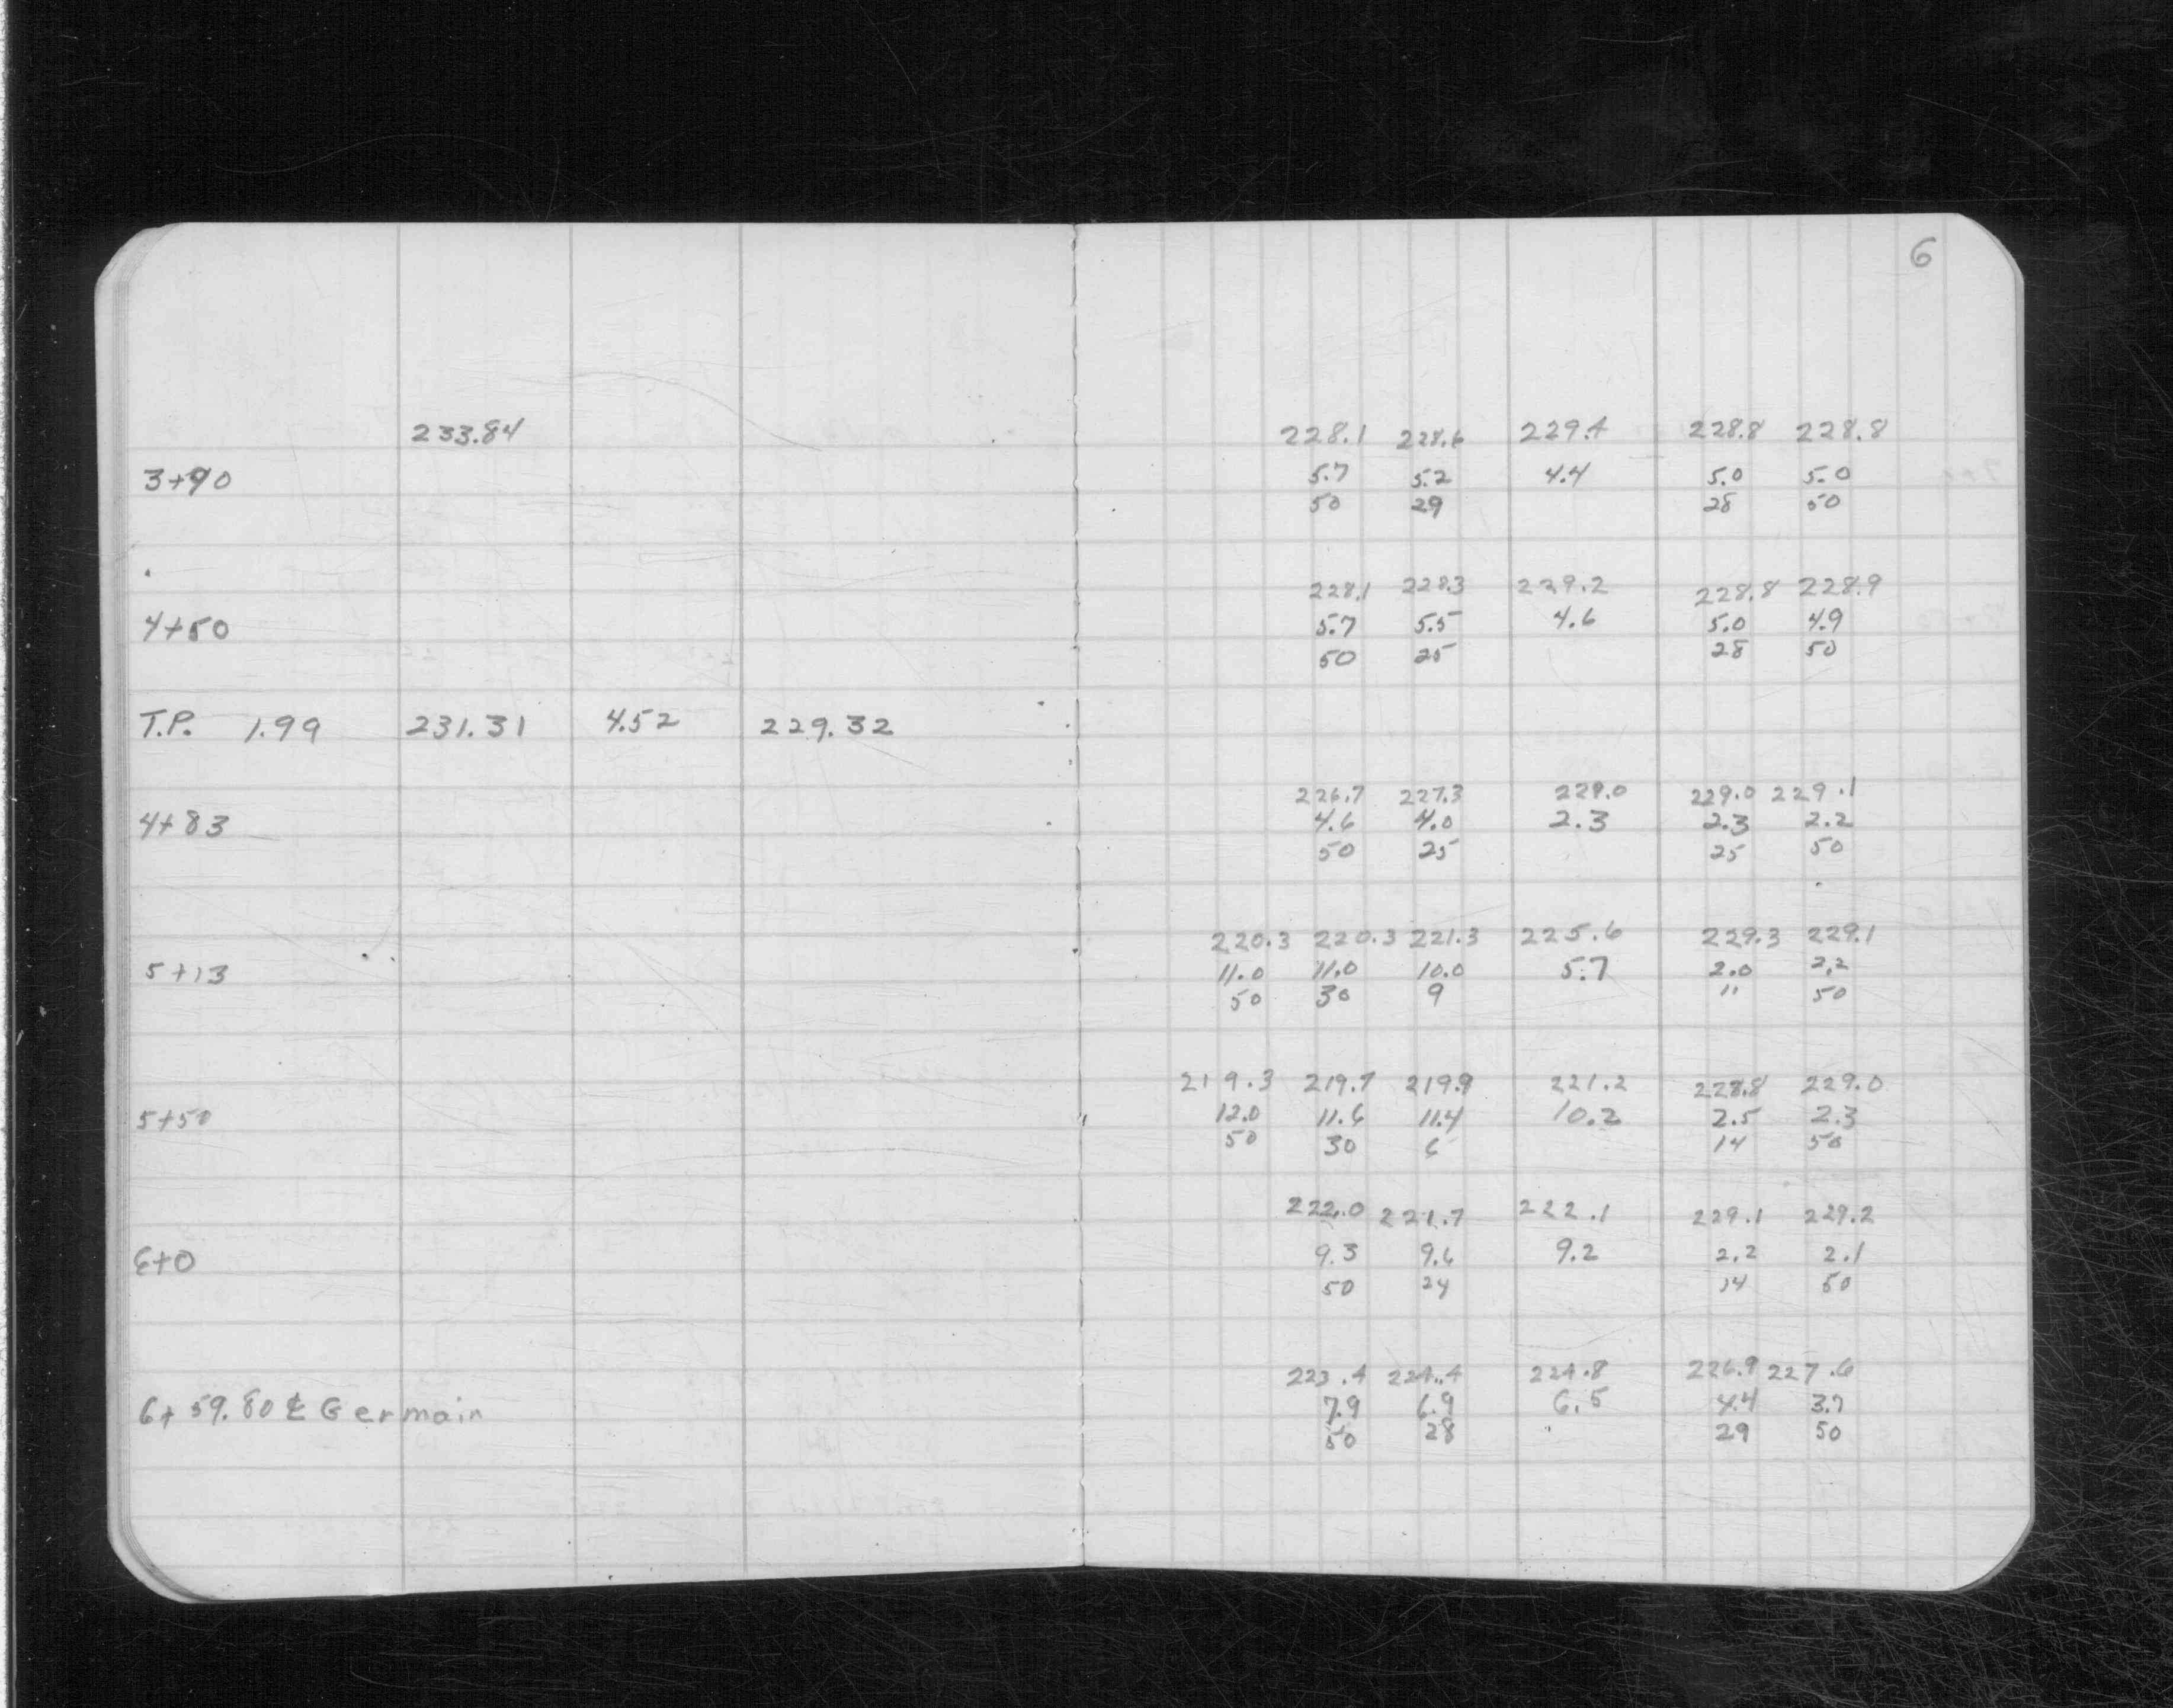 6
233.84 228.1 228.6 229.4 228.8 228.8
3+90 5.7 5.2 4.4 5.0 5.0
50 29 28 50
228.1 228.3 229.2 228.8 228.9
4+50 5.7 5.5 4.6 5.0 4.9
50 25 28 50
T.P. 1.99 231.31 4.52 229.32
226.7 227.3 229.0 229.0 229.1
4+83 4.6 4.0 2.3 2.3 2.2
50 25 25 50
220.3 220.3 221.3 225.6 229.3 229.1
5+13 11.0 11.0 10.0 5.7 2.0 2.2
50 30 9 11 50
219.3 219.7 219.9 221.2 228.8 229.0
5+50 12.0 11.6 11.4 10.2 2.5 2.3
50 30 6 14 50
222.0 221.7 222.1 229.1 229.2
6+0 9.3 9.6 9.2 2.2 2.1
50 24 14 50
223.4 224.4 224.8 226.9 227.6
6+59.80 ℄ Germain 7.9 6.9 6.5 4.4 3.7
50 28 29 50